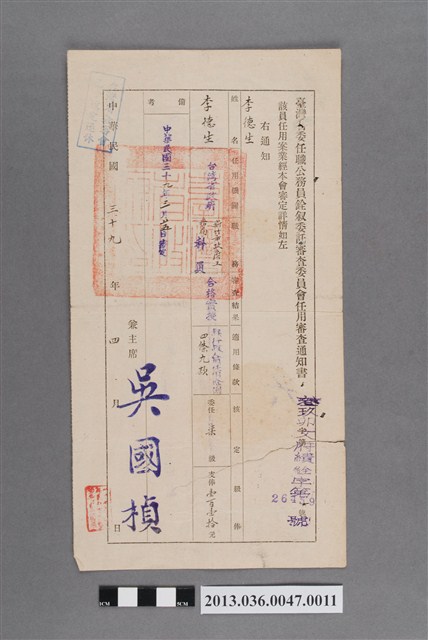 臺灣省委任職公務員銓敘委託審查委員會任用審查通知書
該員任用案業經本會審定詳情如左
右通知
李德生
姓名
任用機關
職務
審查結果
適用條款
核定級俸
李德生
台灣省政府
科員
合格實授
四條九項
委任 柒 級支俸 壹百壹拾元
備考
中華民國三十九年
中華民國 三十九 年 四 月 日
兼主席 吳國楨
號
2013.036.0047.0011